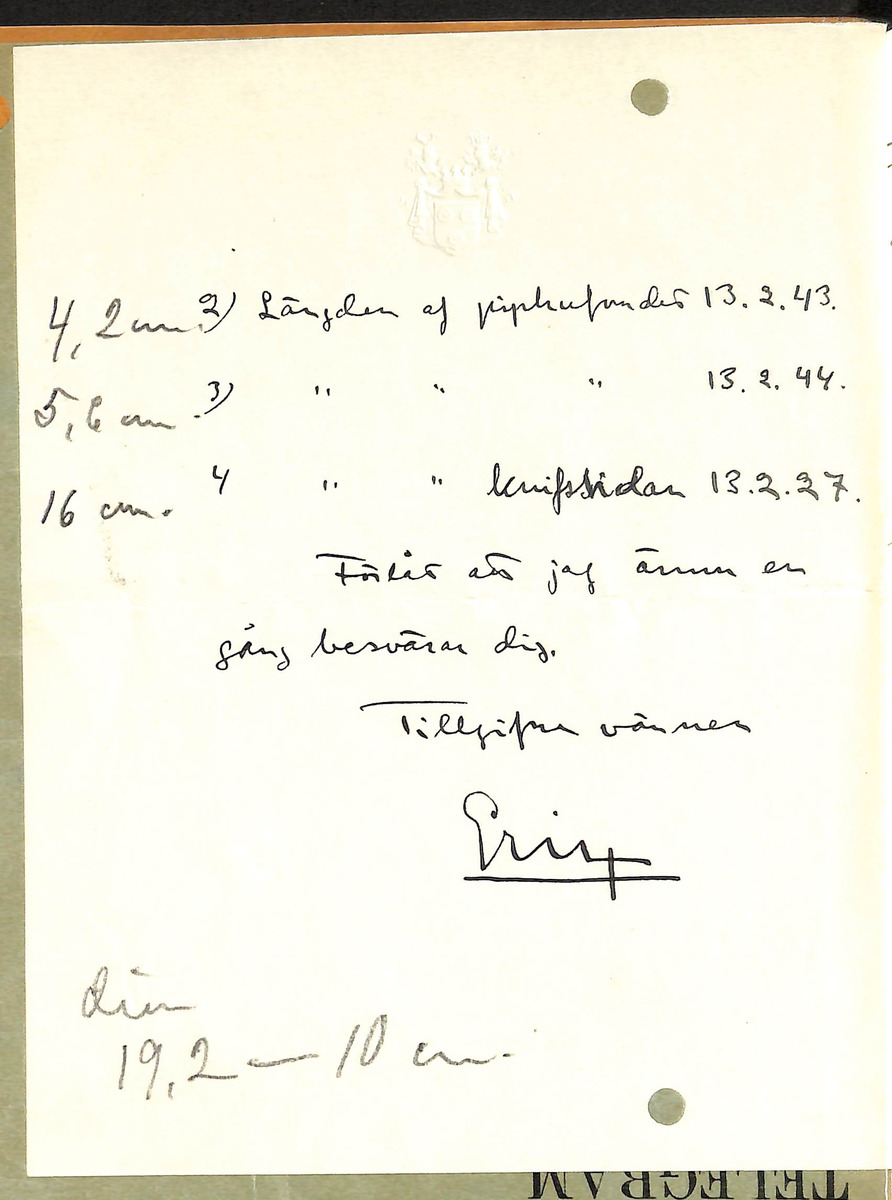 4,2 cm. 2) Längden af piphufvudet 13.2.43.
5,6 cm. 3) " " " 13.2.44.
16 cm. 4 " " knifslidan 13.2.27.
Förlåt att jag ännu en
gång besvärar dig.
Tillgifne vännen
Eric
dim
19,2 — 10 cm.
TELEGRAM